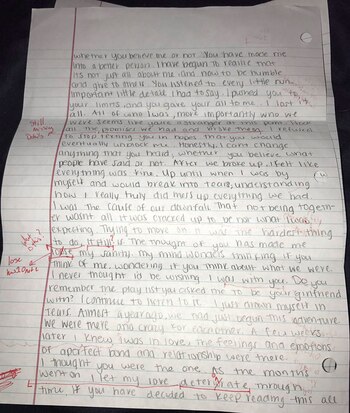 whether you believe me or not. You have made me
into a better person. I have begun to realize that
its not just all about me and how to be humble
and give to others. You listened to every little non
important little detail I had to say. I pushed you to
your limits and you gave your all to me. I lost it
all. All of who I was, more importantly who we
were seems like
all the promises we had and broke them. I refused
to stop texting you in hopes that you would
eventually unblock me. Honestly I can't change
anything that you heard, whether you believe what
people have said or not. After we broke up I felt like
everything was fine. Up until when I was by
myself and would break into tears, understanding
how I really truly did mess up everything we had
I was the cause of our downfall. That not being togeth-
er wasnt all it was cracked up to be nor what I was
expecting. Trying to move on is the harder thing
to do, the thought of you has made me
lose my sanity. My mind wonders thinking if you
think of me, wondering if you think about what we were.
I never thought id be wishing I was with you. Do you
remember the playlist you asked me to be your girlfriend
with? I continue to listen to it, just drown myself in
tears. Almost a year ago, we had just begun this adventure.
We were there and crazy for eachother. A few weeks
later I knew I was in love, the feelings and emotions
of a perfect bond and relationship were there.
I thought you were the one. As the months
went on I let my love deteriorate through
time, if you have decided to keep reading this all
Still
missing
lose